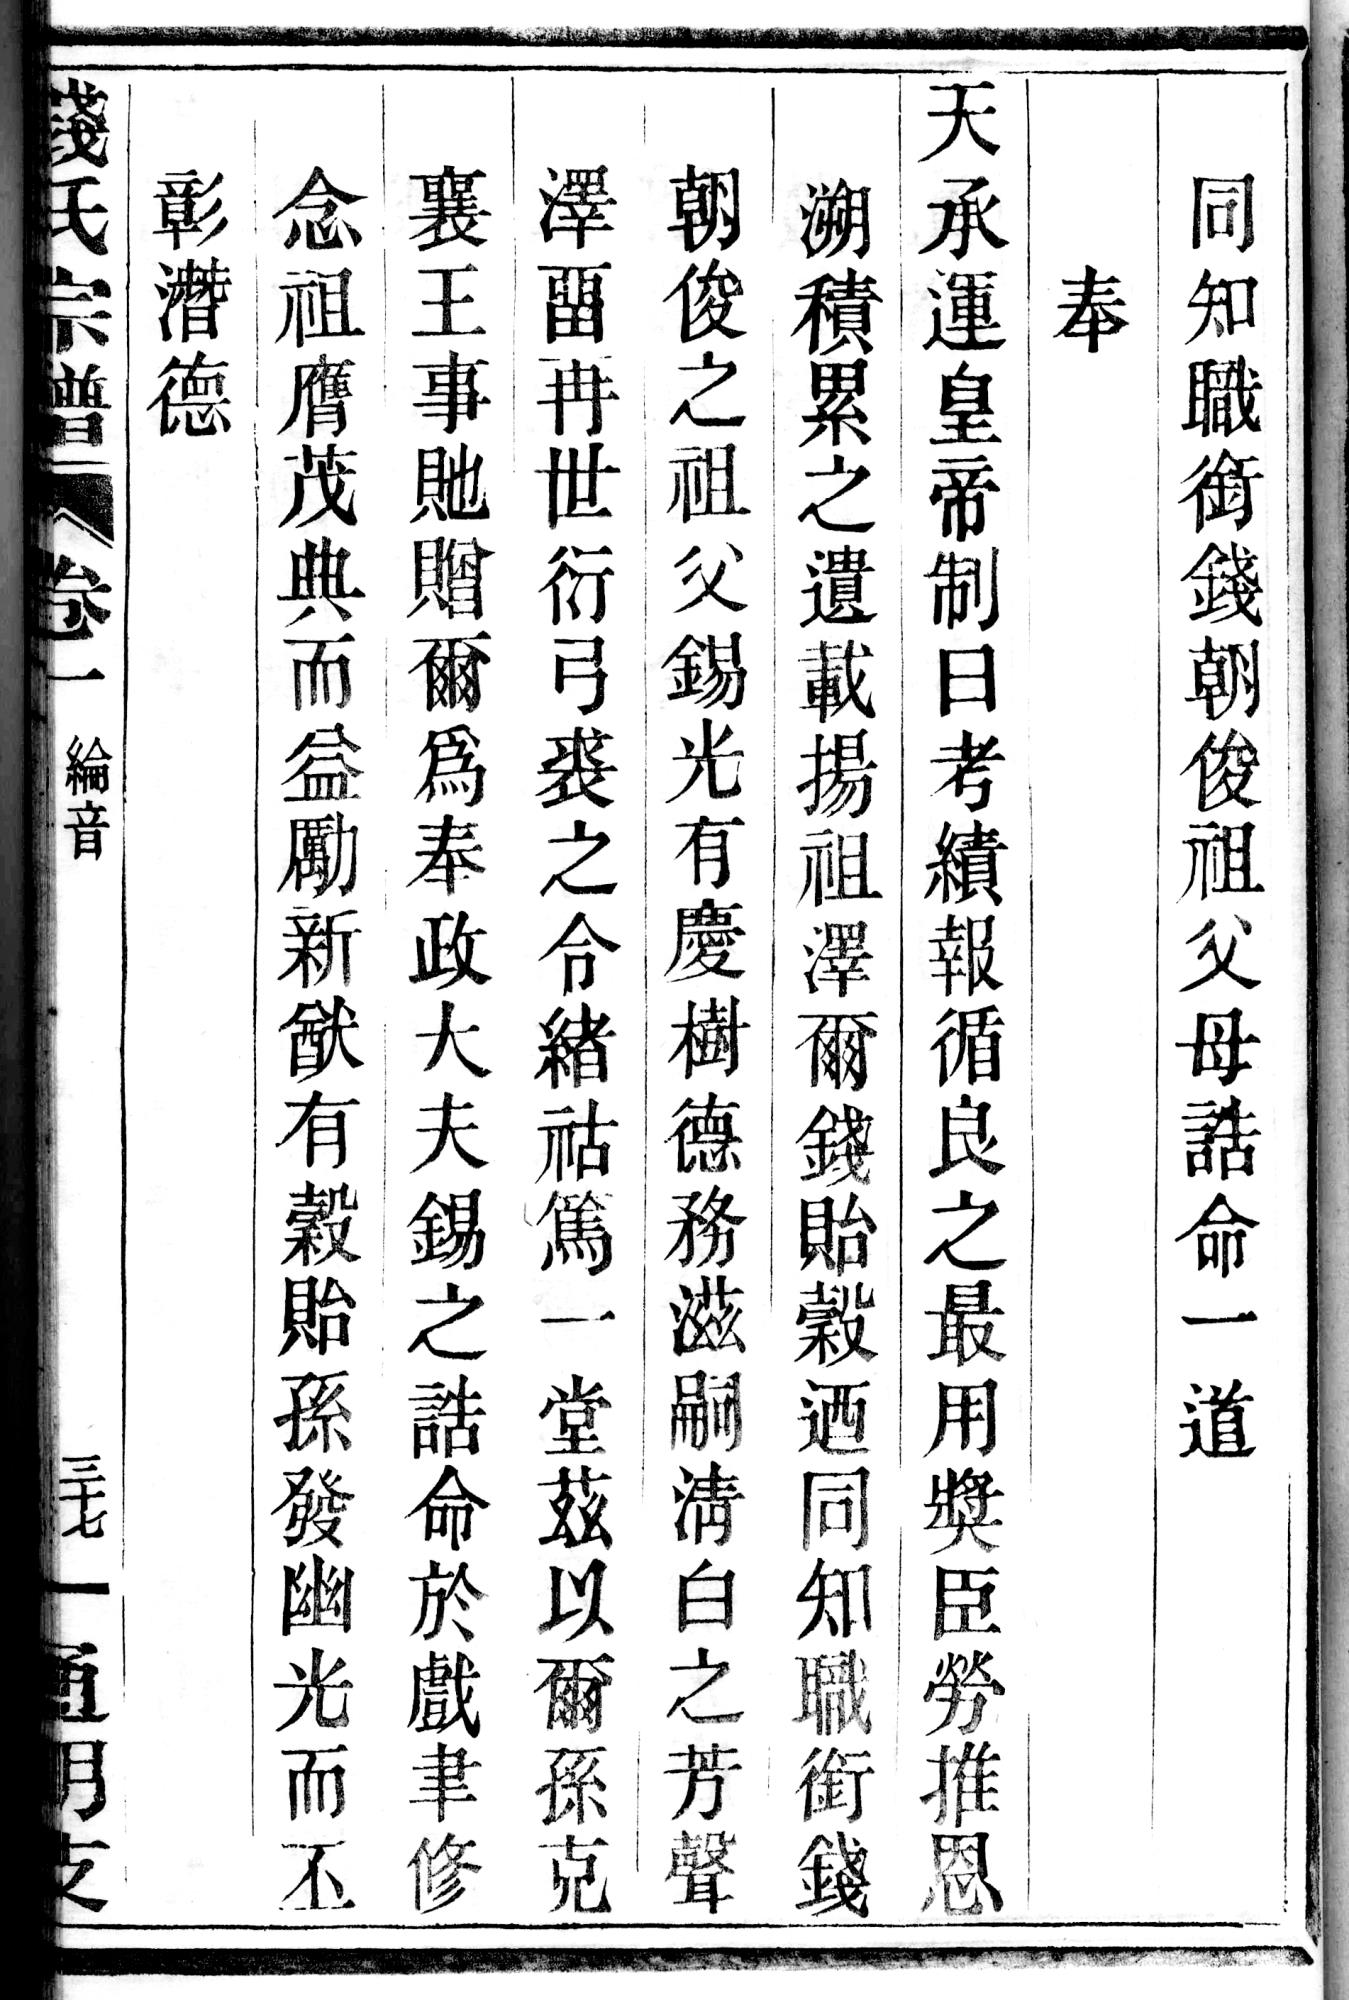 同知職銜錢朝俊祖父母誥命一道
奉
天承運皇帝制曰考績報循良之最用獎臣勞推恩
溯積累之遺載揚祖澤爾錢貽穀迺同知職銜錢
朝俊之祖父錫光有慶樹德務滋嗣淸白之芳聲
澤畱冉世衍弓裘之令緒祜篤一堂茲以爾孫克
襄王事貤贈爾爲奉政大夫錫之誥命於戲聿修
念祖膺茂典而益勵新猷有穀貽孫發幽光而丕
彰濳德
錢氏宗譜 卷一 綸音 三十七 一 通明支